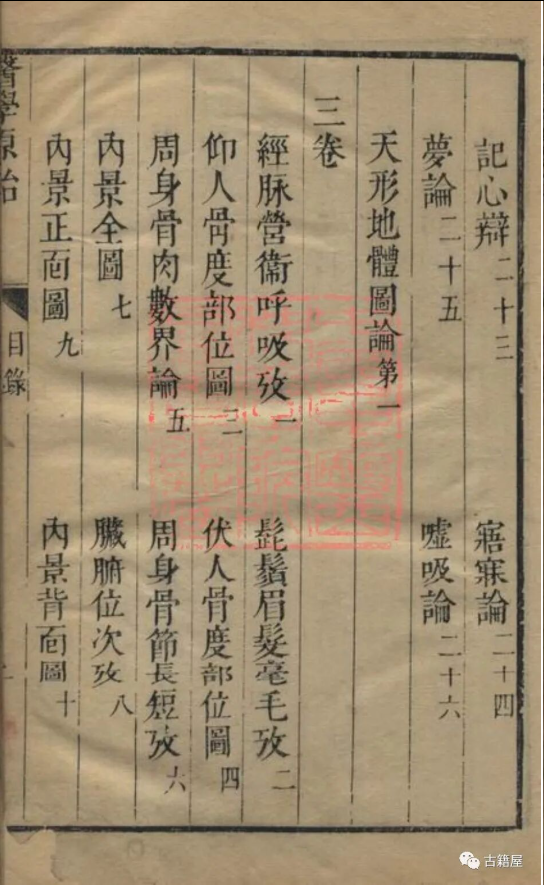 記心辯二十三 寤寐論二十四
夢論二十五 噓吸論二十六
天形地體圖論第一
三卷
經脉營衞呼吸攷一 髭鬚眉髮毫毛攷二
仰人骨度部位圖三 伏人骨度部位圖四
周身骨肉數界論五 周身骨節長短攷六
內景全圖七 臟腑位次攷八
內景正面圖九 內景背面圖十
醫學原始 目錄
古籍屋